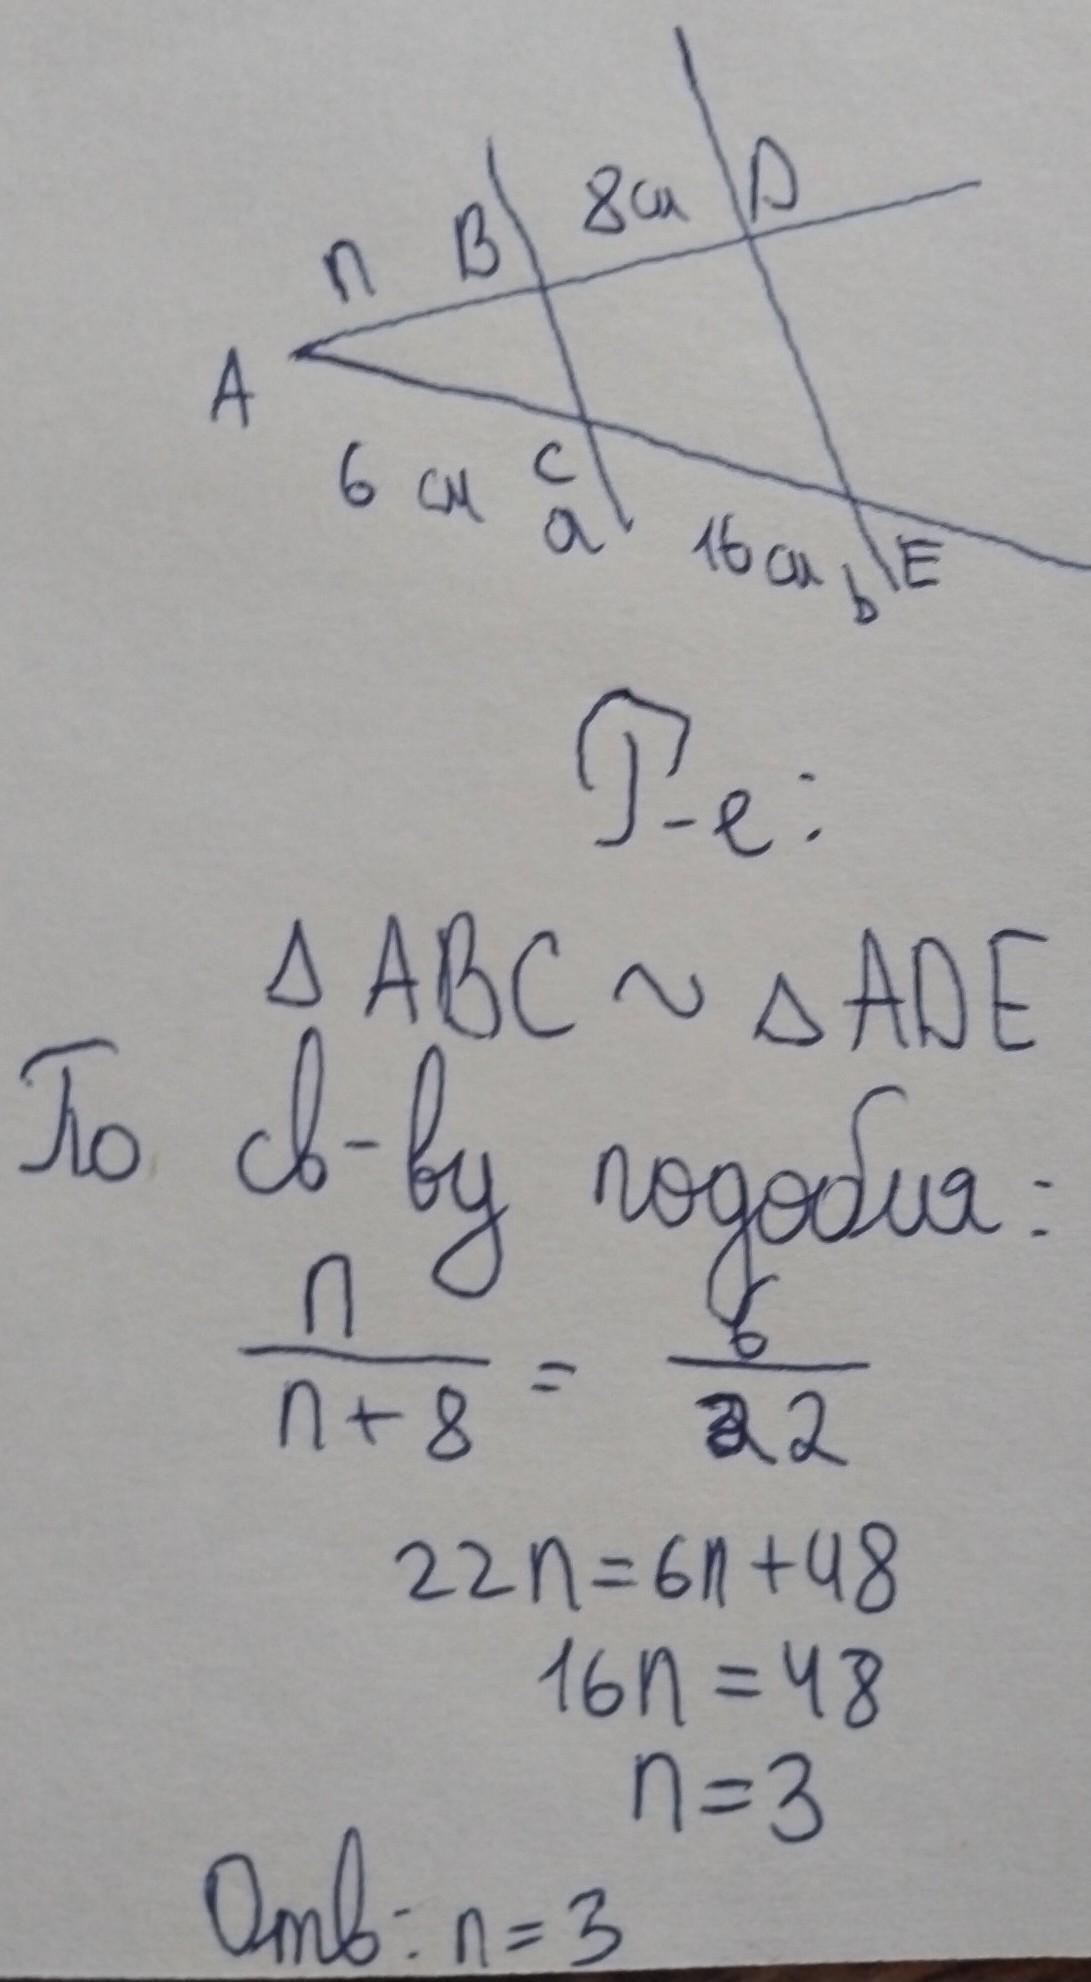 D
8 см
B
n
A
C
6 см
a
16 см
E
b
Р-е:
Δ ABC ~ Δ ADE
По св-ву подобия:
n/(n+8) = 6/22
22n=6n+48
16n=48
n=3
Отв: n=3